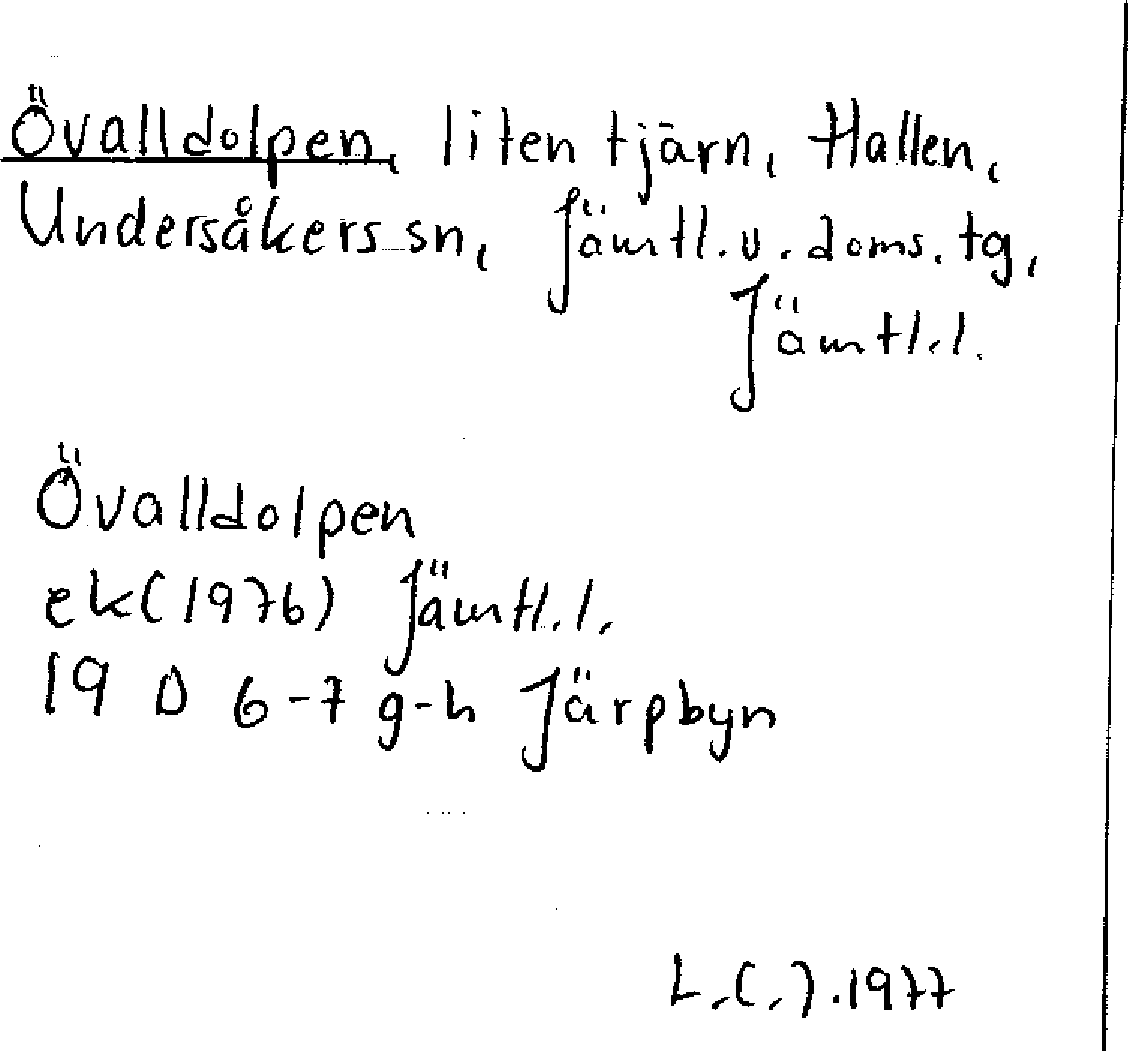 Övalldolpen, liten tjärn, Hallen,
Undersåkers sn, Jämtl. v. doms. tg,
Jämtl.l.
Övalldolpen
ek(1976) Jämtl.l.
19 D 6-7 g-h Järpbyn
L.C.J.1977